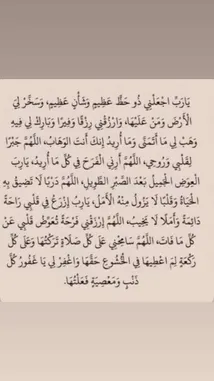 يَارَبِّ اجْعَلْنِي ذُو حَظٍّ عَظِيمٍ وَشَأْنٍ عَظِيمٍ، وَسَخِّرْ لِيَ
الْأَرْضَ وَمَنْ عَلَيْهَا، وَارْزُقْنِي رِزْقًا وَفِيرًا وَبَارِكْ لِي فِيهِ
وَهَبْ لِي مَا أَتَمَنَّى وَمَا أُرِيدُ إِنَّكَ أَنتَ الوَهَّابُ، اللَّهُمَّ جَبْرًا
لِقَلْبِي وَرُوحِي، اللَّهُمَّ أَرِنِي الْفَرَحَ فِي كُلِّ مَا أُرِيدُ، يَارِبِّ
الْعِوَضَ الْجَمِيلَ بَعْدَ الصَّبْرِ الطَّوِيلِ، اللَّهُمَّ دَرْبًا لَا تَضِيقُ بِهِ
الْحَيَاةُ وَقَلْبًا لَا يَزُولُ مِنْهُ الْأَمَلُ، يَارِبُ إِزْرَعْ فِي قَلْبِي رَاحَةً
دَائِمَةً وَأَمَلًا لَا يَخِيبُ، اللَّهُمَّ إِرْزِقْنِي فَرْحَةً تُعَوِّضُ قَلْبِي عَنْ
كُلِّ مَا فَاتَ، اللَّهُمَّ سَامِحْنِي عَلَى كُلِّ صَلَاةٍ تَرَكْتُهَا وَعَلَى كُلِّ
رَكْعَةٍ لَمْ اعْطِيهَا فِي الْخُشُوعِ حَقَّهَا وَاغْفِرْ لِي يَا غَفُورُ كُلَّ
ذَنْبٍ وَمَعْصِيَةٍ فَعَلْتُهَا.